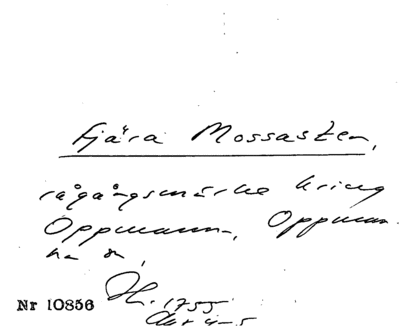 Fjära Mossasten,
rågångsmärke kring
Oppmanna, Oppman
na sn,
Nr 10856
H. 1755